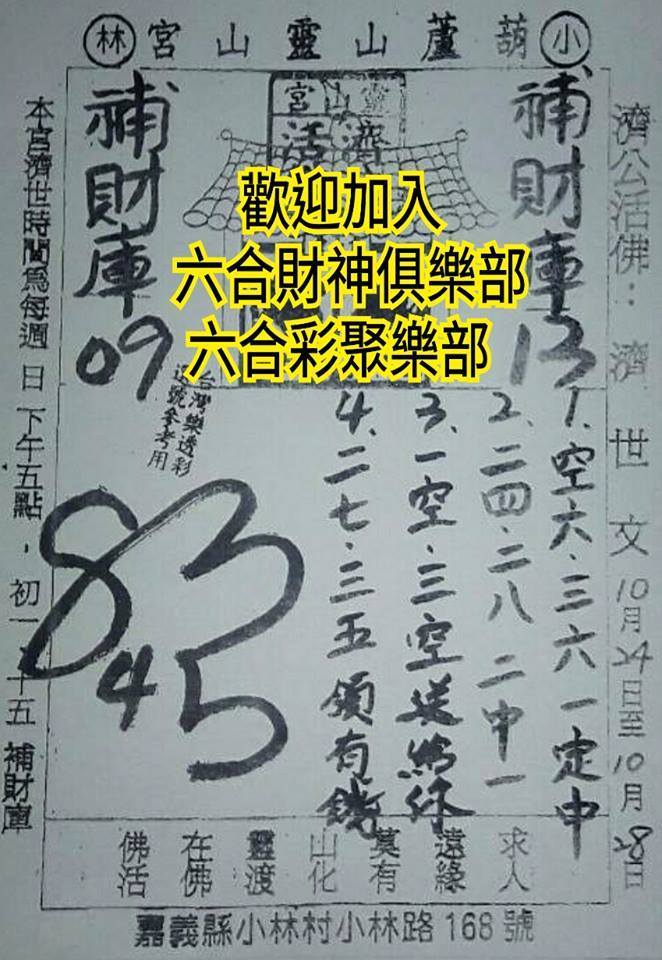 小 葫蘆山靈山宮 林
濟公活佛：濟世文10月24日至10月28日
補財庫13
靈山宮
濟活
補財庫09
歡迎加入
六合財神俱樂部
六合彩聚樂部
1、空六·三六一定中
2、二四·二八 二中一
3、一空·三空送給你
4、二七·三五領有錢
台灣樂透彩
選號參考用
83
45
本宮濟世時間為每週日下午五點，初一、十五 補財庫
求人
遠緣
莫有
山化
靈渡
在佛
佛活
嘉義縣小林村小林路168號